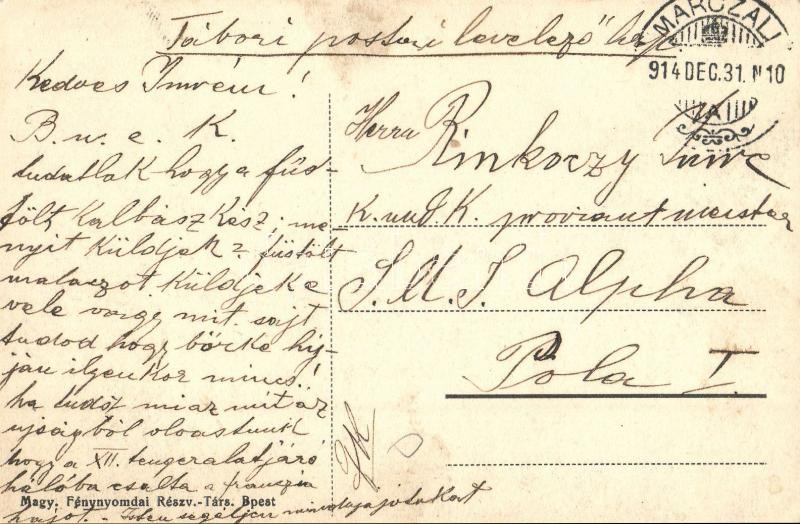 Tábori postai levelező lap
MARCZALI
914 DEC. 31. N 10
A
Kedves Imrém!
B. u. é. K.
tudatlak hogy a füs-
tölt kalbász kész; me-
nyit küldjek? füstölt
malaczot küldjek e
vele vagy mit. sajt
tudod hogy böcke hij-
ján ilyenkor nincs!
ha tudsz miaz mit az
ujságból olvastunk
hogy a XII. tengeralatjáró
hálóba csalta a franczia
hajot. - Isten segéljen mindnyájatokat
Herrn Rinkoczy Imre
K. und K. proviantmeister
S. M. S. Alpha
Pola I.
Magy. Fénynyomdai Részv.-Társ. Bpest